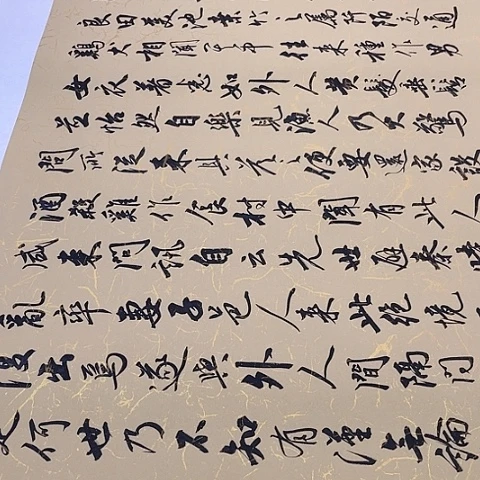 良田美池桑竹之屬阡陌交通
鷄犬相聞其中往來種作男
女衣著悉如外人黃髮垂髫
並怡然自樂見漁人乃大驚
問所從來具答之便要還家設
酒殺雞作食村中聞有此人
咸來問訊自云先世避秦時
亂率妻子邑人來此絕境
復出焉遂與外人間隔問
是何世乃不知有漢無論